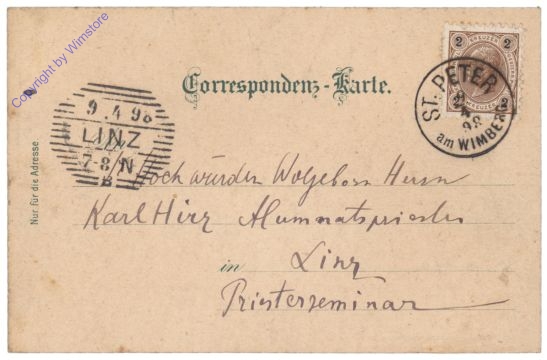 Copyright by Wimstore
Correspondenz-Karte.
2 KREUZER 2
2 2
ST. PETER
98
am WIMBERG
9.4 98
LINZ
7-8/N
B
Nur für die Adresse
Hochwürden Wolgeborn Herrn
Karl Hirz Alumnatspriester
in Linz
Priesterseminar